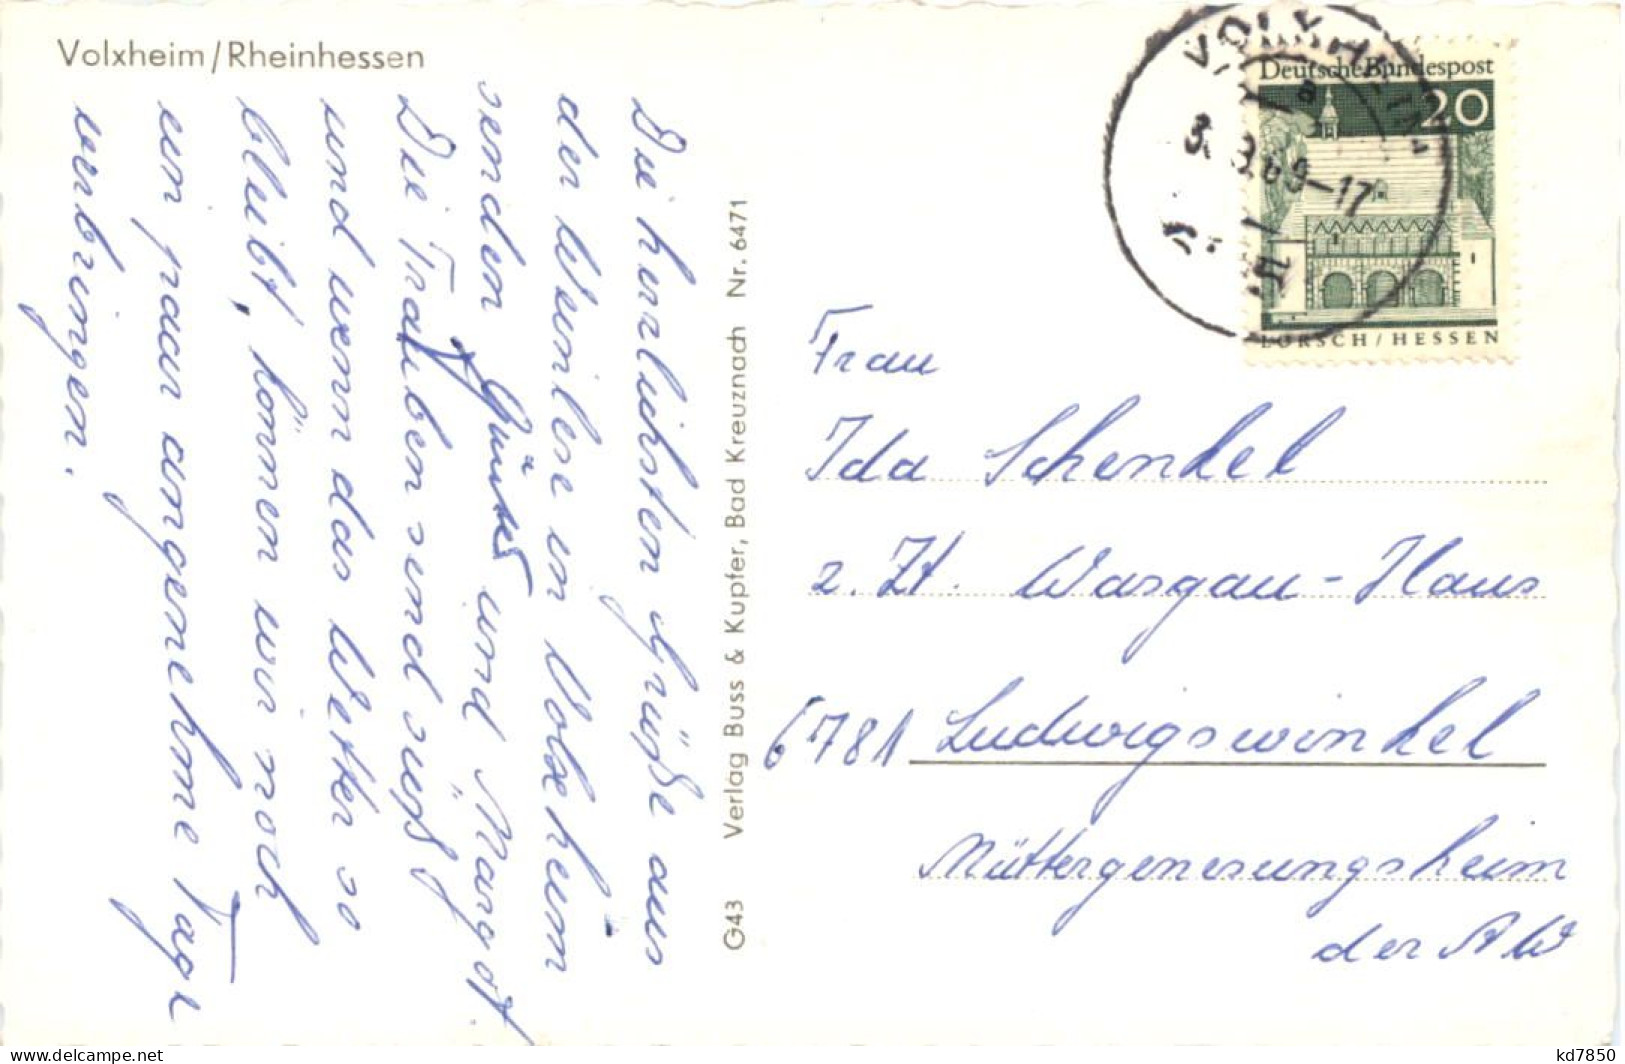 Volxheim/Rheinhessen
Die herzlichsten Grüße aus
der Weinlese in Volxheim
senden Günter und Margot
Die Trauben sind süß
und wenn das Wetter so
bleibt, können wir noch
ein paar angenehme Tage
verbringen.
G43 Verlag Buss & Kupfer, Bad Kreuznach Nr. 6471
VOLXHEIM
a
69-17
Deutsche Bundespost
20
LORSCH/HESSEN
Frau
Ida Schenkel
z. Zt. Wasgau-Haus
6781 Ludwigswinkel
Müttergenesungsheim
der AW
www.delcampe.net
kd7850